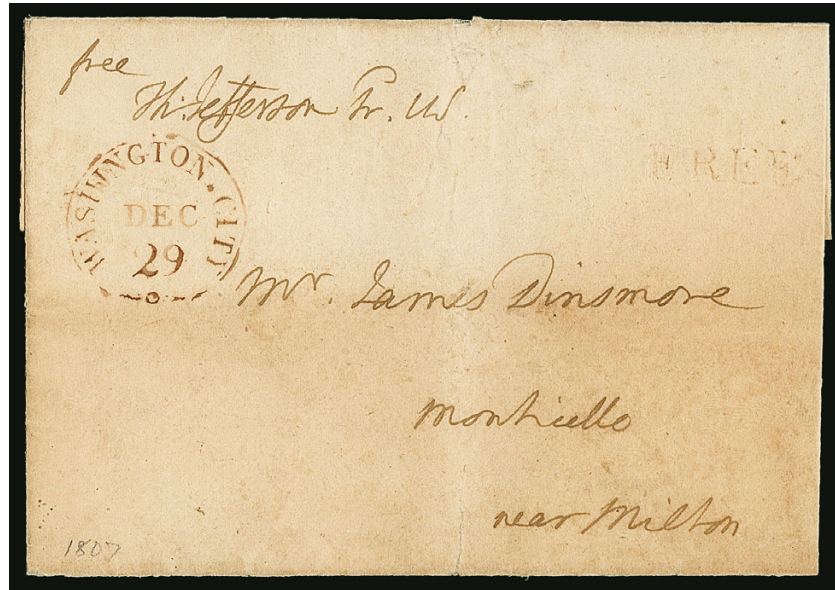 free
Th: Jefferson Pr. US.
FREE
WASHINGTON. CITY
DEC
29
Mr. James Dinsmore
Monticello
near Milton
1807